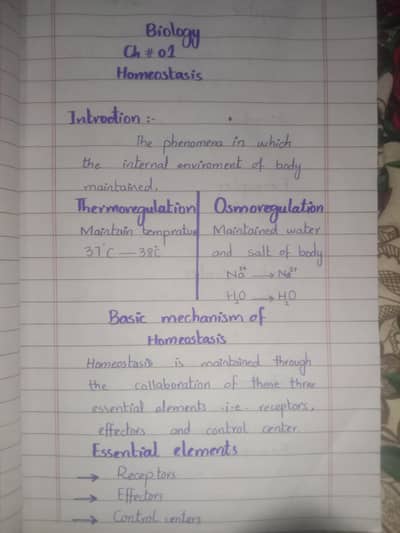 Biology
Ch # 01
Homeostasis
Introction :-
The phenomena in which
the internal enviroment of body
maintained.
Thermoregulation
Maintain tempratue
37°C — 38°C
Osmoregulation
Maintained water
and salt of body
Na⁺ → Na⁺
H₂O → H₂O
Basic mechanism of
Homeostasis
Homeostasis is maintained through
the collaboration of these three
essential elements i.e. receptors,
effectors and control center.
Essential elements
→ Receptors
→ Effectors
→ Control centers